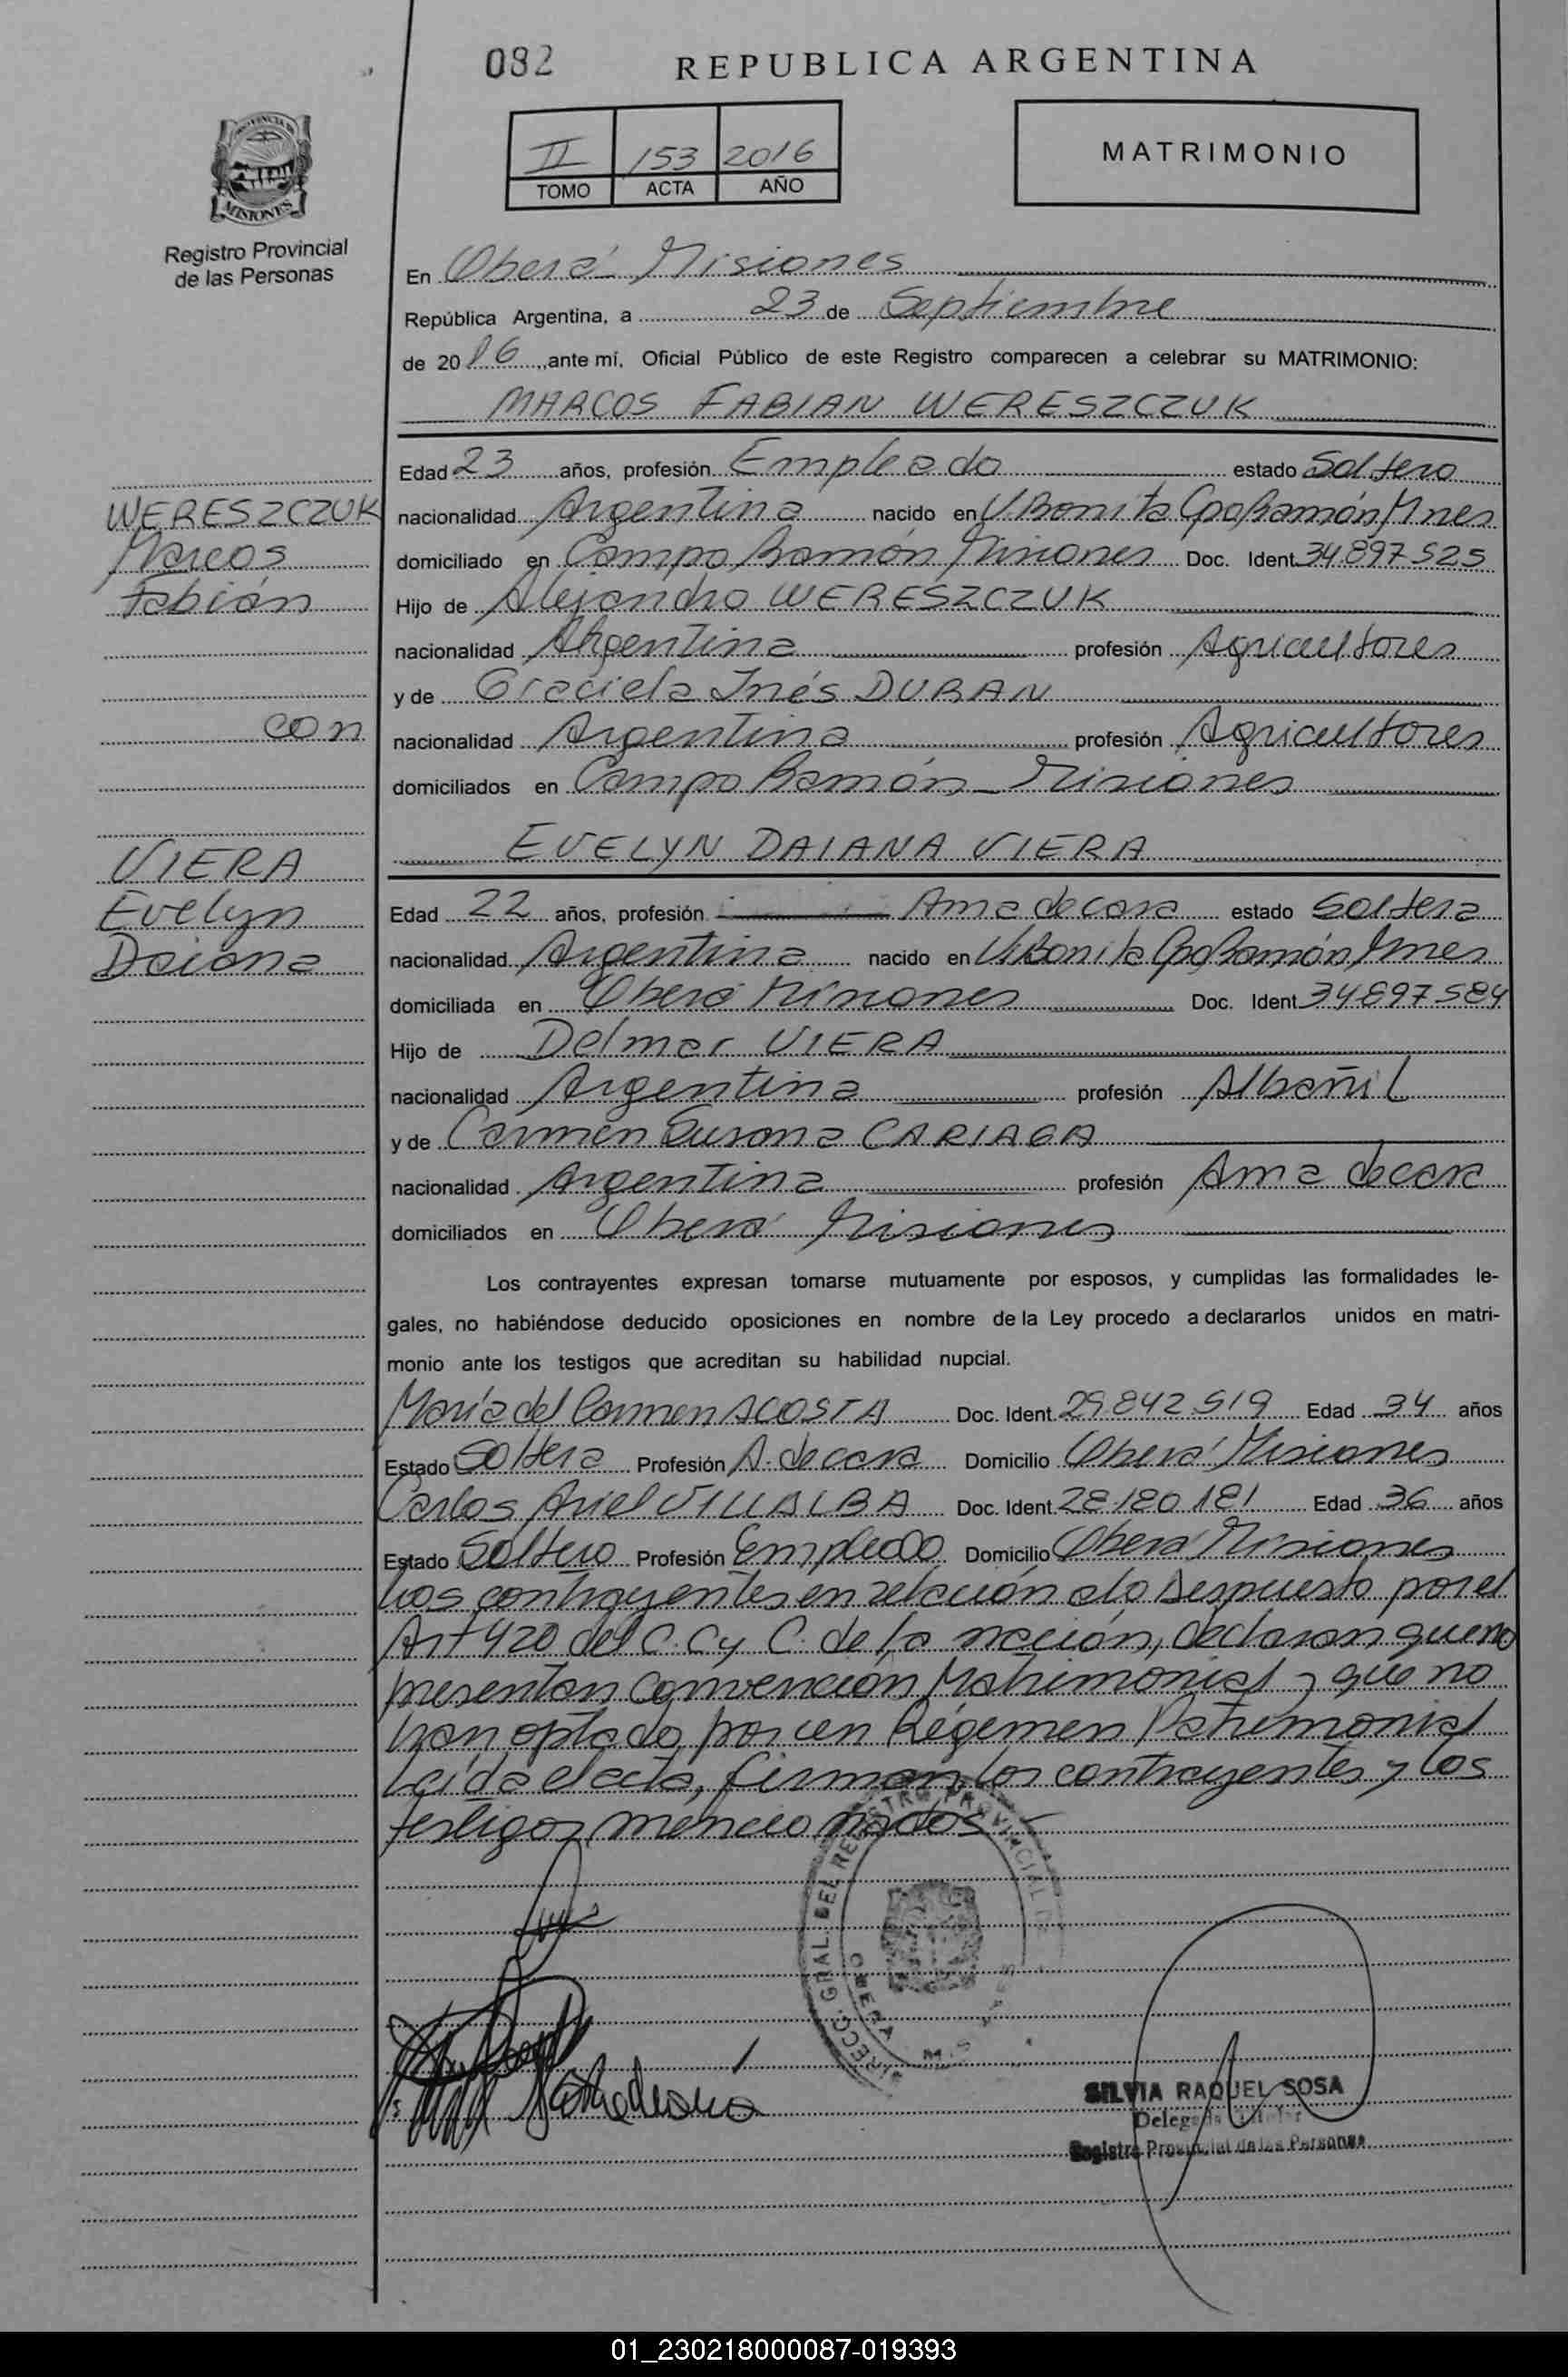 082
REPUBLICA ARGENTINA
II 153 2016
TOMO ACTA AÑO
MATRIMONIO
PROVINCIA DE
MISIONES
Registro Provincial
de las Personas
En Oberá Misiones
República Argentina, a 23 de Septiembre
de 2016, ante mí, Oficial Público de este Registro comparecen a celebrar su MATRIMONIO:
MARCOS FABIAN WERESZCZUK
WERESZCZUK
Marcos
Fabián
con
VIERA
Evelyn
Daiana
Edad 23 años, profesión Empleado estado Soltero
nacionalidad Argentina nacido en V.Bonita CpoRamón Mnes
domiciliado en Campo Ramón Misiones Doc. Ident. 34.897525
Hijo de Alejandro WERESZCZUK
nacionalidad Argentina profesión Agricultores
y de Graciela Inés DURAN
nacionalidad Argentina profesión Agricultores
domiciliados en Campo Ramón - Misiones
EVELYN DAIANA VIERA
Edad 22 años, profesión Ama de casa estado Soltera
nacionalidad Argentina nacido en V.Bonita CpoRamón Mnes
domiciliada en Oberá Misiones Doc. Ident. 34897584
Hijo de Delmar VIERA
nacionalidad Argentina profesión Albañil
y de Carmen Susana CARIAGA
nacionalidad Argentina profesión Ama de casa
domiciliados en Oberá Misiones
Los contrayentes expresan tomarse mutuamente por esposos, y cumplidas las formalidades le-
gales, no habiéndose deducido oposiciones en nombre de la Ley procedo a declararlos unidos en matri-
monio ante los testigos que acreditan su habilidad nupcial.
María del Carmen ACOSTA Doc. Ident. 29.842.519 Edad 34 años
Estado Soltera Profesión A. de casa Domicilio Oberá Misiones
Carlos Ariel VILLALBA Doc. Ident. 28.180.181 Edad 36 años
Estado Soltero Profesión Empleado Domicilio Oberá Misiones
Los contrayentes en relación a lo dispuesto por el
Art 420 del C. C y C. de la nación, declaran que no
presentan Convención Matrimonial y que no
han optado por un Régimen Patrimonial
Leída el acta, firman los contrayentes y los
testigos mencionados.-
DIRECC. GRAL. DEL REGISTRO PROVINCIAL
OBERA
SILVIA RAQUEL SOSA
Delegada Titular
Registro Provincial de las Personas
01_230218000087-019393